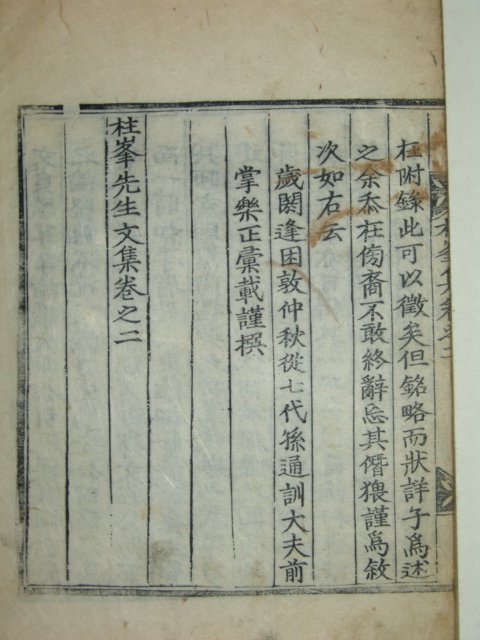 在附錄此可以徵矣但銘略而狀詳子爲述
之余忝在傍裔不敢終辭忘其僭猥謹爲敘
次如右云
歲閼逢困敦仲秋從七代孫通訓大夫前
掌樂正彙載謹撰
柱峯先生文集卷之二